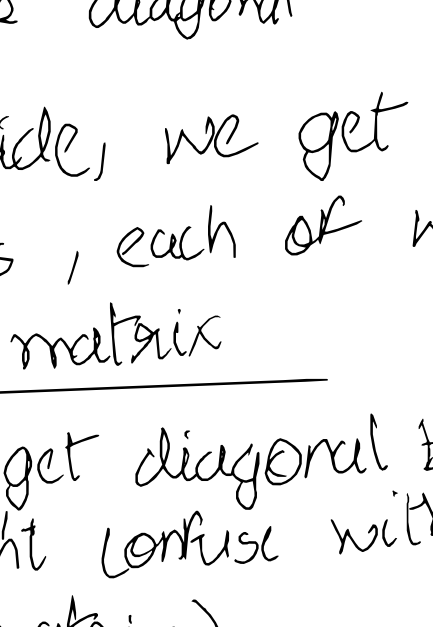 diagonal
we get
, each of
matrix
get diagonal
confuse with